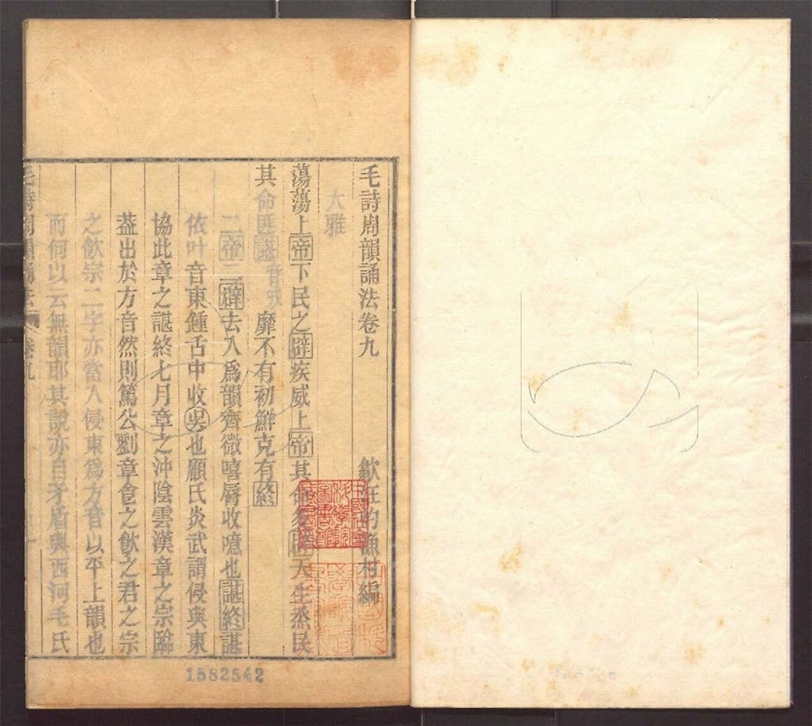 毛詩周韻誦法卷九
歙汪灼漁村編
大雅
蕩蕩上帝下民之辟疾威上帝其命多辟天生烝民
其命匪諶音㳄靡不有初鮮克有終
二帝二辟去入爲韻齊微嘻脣收噫也諶終諶
依叶音東鍾舌中收也顧氏炎武謂侵與東
協此章之諶終七月章之沖陰雲漢章之宗臨
葢出於方音然則篤公劉章食之飲之君之宗
之飲宗二字亦當入侵東爲方音以平上韻也
而何以云無韻耶其說亦自矛盾與西河毛氏
毛詩周韻誦法 卷九 一
1582542